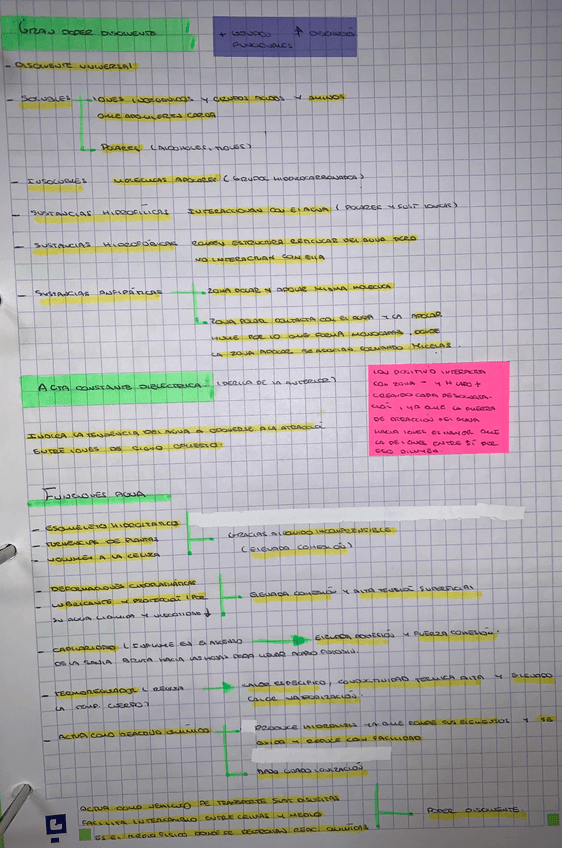 GRAN PODER DISOLVENTE
+ GRUPOS ↑ DISOLUCIÓ
FUNCIONALES
- DISOLVENTE UNIVERSAL
- SOLUBLES
IONES INORGÁNICOS Y GRUPOS ÁCIDOS Y AMINOS
QUE ADQUIEREN CARGA
POLARES (ALCOHOLES, TIOLES)
- INSOLUBLES MOLÉCULAS APOLARES (GRUPOS HIDROCARBONADOS)
- SUSTANCIAS HIDROFÍLICAS INTERACCIONAN CON EL AGUA (POLARES Y SUST IÓNICAS)
- SUSTANCIAS HIDROFÓBICAS ROMPEN ESTRUCTURA RETICULAR DEL AGUA PERO
NO INTERACTÚAN CON ELLA
- SUSTANCIAS ANFIPÁTICAS
ZONA POLAR Y APOLAR MISMA MOLÉCULA
ZONA POLAR CONTACTA CON EL AGUA Y LA APOLAR
HUYE POR LO QUE FORMA MONOCAPAS, DONDE
LA ZONA APOLAR SE AGRUPA FORMANDO MICELAS.
ALTA CONSTANTE DIELÉCTRICA (DERIVA DE LA ANTERIOR)
INDICA LA TENDENCIA DEL AGUA A OPONERSE A LA ATRACCIÓ
ENTRE IONES DE SIGNO OPUESTO.
ION POSITIVO INTERACCIA
CON ZONA - Y
CREANDO CAPA DE SOLVATA-
CIÓN, YA QUE LA FUERZA
DE ATRACCIÓN DEL AGUA
HACIA IONES ES MAYOR QUE
LA DE IONES ENTRE SÍ POR
ESO DILUYEN.
FUNCIONES AGUA
- ESQUELETO HIDROSTÁTICO
- TURGENCIA DE PLANTAS
- VOLUMEN A LA CÉLULA
GRACIAS A LÍQUIDO INCOMPRENSIBLE
(ELEVADA COHESIÓN)
- DEFORMACIONES CITOPLASMÁTICAS
- LUBRICANTE Y PROTECCIÓ (POR
SU AGUA LÍQUIDA Y VISCOSIDAD ↓
ELEVADA COHESIÓN Y ALTA TENSIÓ SUPERFICIAL
- CAPILARIDAD (INFLUYE EN EL ASCENSO
DE LA SAVIA BRUTA HACIA LAS HOJAS PARA LLEVAR ACABO FOTOSÍN.
ELEVADA ADHESIÓN Y FUERZA COHESIÓN.
- TERMORREGULADOR (REGULA
LA TEMP. CUERPO)
CALOR ESPECÍFICO, CONDUCTIVIDAD TÉRMICA ALTA Y ELEVADO
CALOR VAPORIZACIÓN.
- ACTÚA COMO REACTIVO QUÍMICO
PRODUCE HIDRÓLISIS YA QUE ROMPE SUS ENLACES Y SE
OXIDA Y REDUCE CON FACILIDAD
BAJO GRADO IONIZACIÓN
ACTÚA COMO VEHÍCULO DE TRANSPORTE SUST DISUELTAS
FACILITA INTERCAMBIO ENTRE CÉLULAS Y MEDIO
ES EL MEDIO FÍSICO DONDE SE DESARROLLAN REAC. QUÍMICAS
PODER DISOLVENTE.